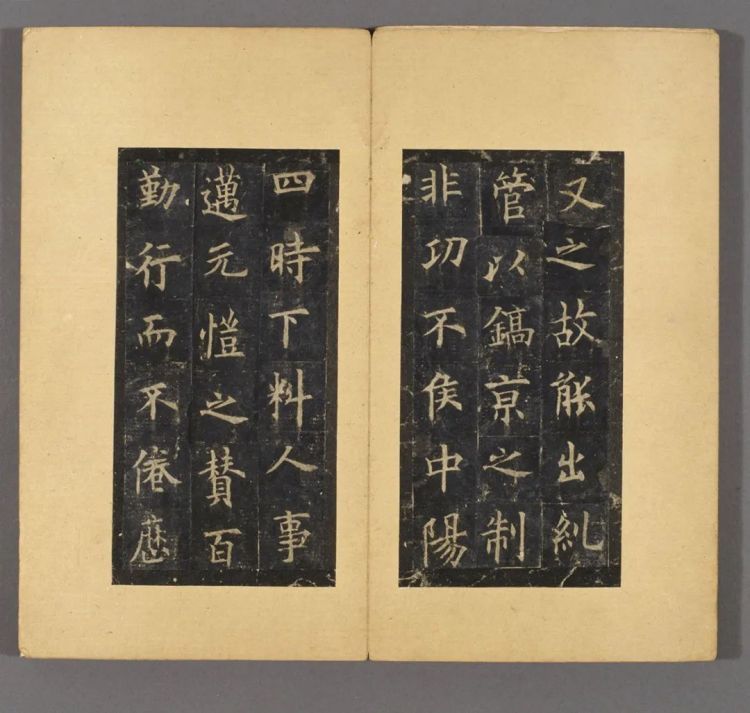 又之故能出糺
管以鎬亰之制
非功不侯中陽
四時下料人事
邁元愷之賛百
勤行而不倦